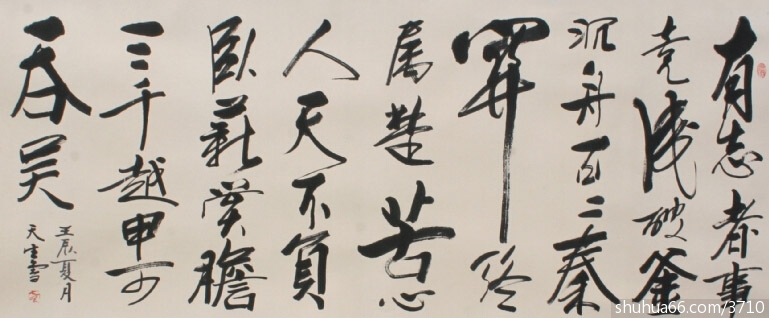 有志者事
竟成破釜
沉舟百二秦
關終
属楚苦心
人天不負
臥薪嘗膽
三千越甲可
吞吴
壬辰夏月
shuhua66.com/3710